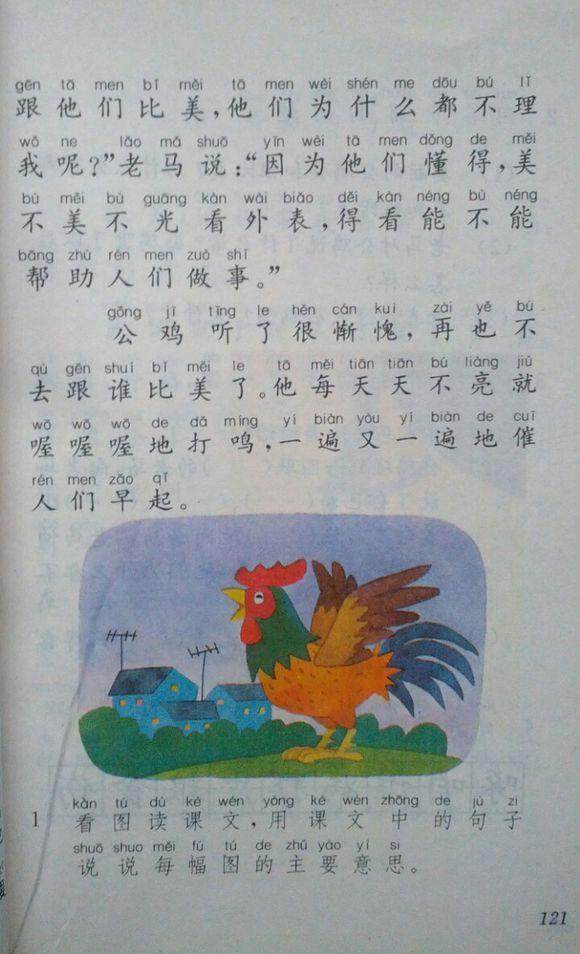 gēn tā men bǐ měi tā men wèi shén me dōu bù lǐ
跟他们比美,他们为什么都不理
wǒ ne lǎo mǎ shuō yīn wèi tā men dǒng de měi
我呢?”老马说:“因为他们懂得,美
bù měi bù guāng kàn wài biǎo děi kàn néng bù néng
不美不光看外表,得看能不能
bāng zhù rén men zuò shì
帮助人们做事。”
gōng jī tīng le hěn cán kuì zài yě bù
公鸡听了很惭愧,再也不
qù gēn shuí bǐ měi le tā měi tiān tiān bú liàng jiù
去跟谁比美了。他每天天不亮就
wō wō wō de dǎ míng yí biàn yòu yí biàn de cuī
喔喔喔地打鸣,一遍又一遍地催
rén men zǎo qǐ
人们早起。
kàn tú dú kè wén yòng kè wén zhōng de jù zi
1 看图读课文,用课文中的句子
shuō shuo měi fú tú de zhǔ yào yì si
说说每幅图的主要意思。
121